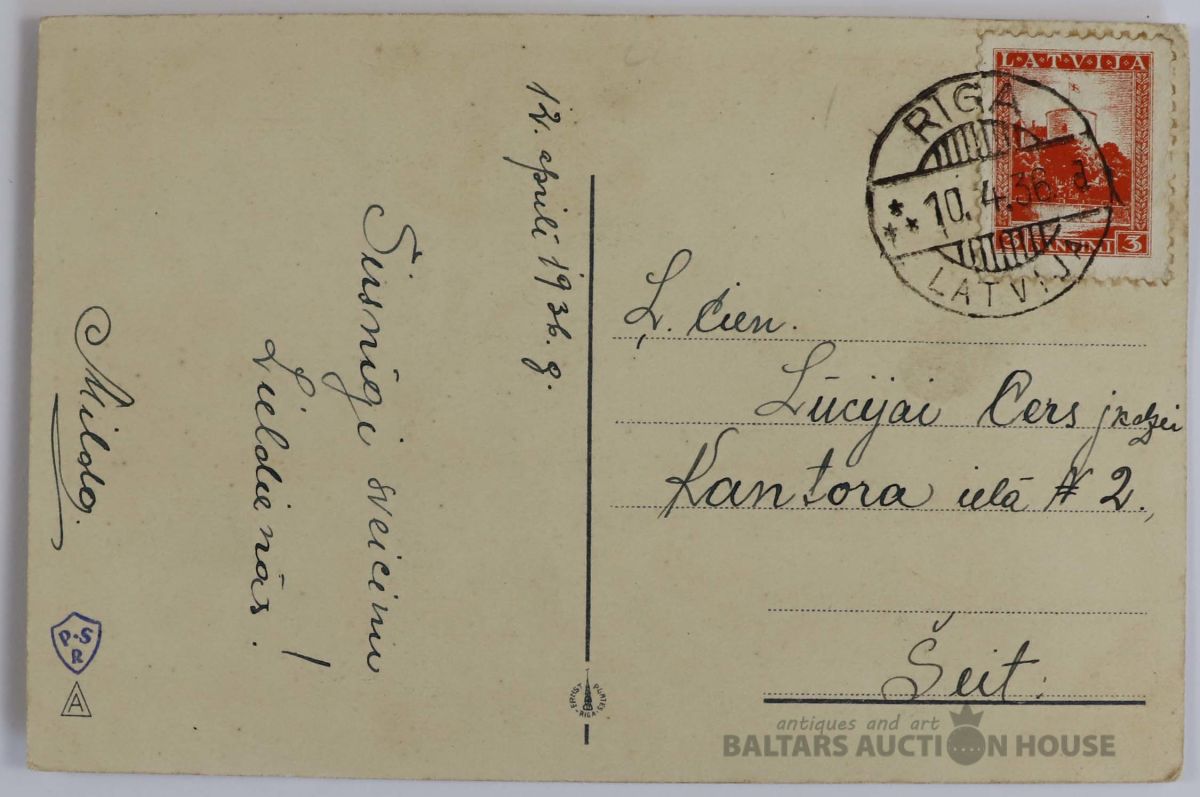 12. aprīlī 1936. g.
Sirsnīgi sveicinu
Lieldienās!
Milda.
P.S
R
A
ERNST PLATES
-RIGA-
LATVIJA
3
RIGA
10. 4.36. d
LATVIJA
Ļ. Cien.
Lūcijai
Kantora ielā # 2.,
Šeit.
antiques and art
BALTARS AUCTION HOUSE